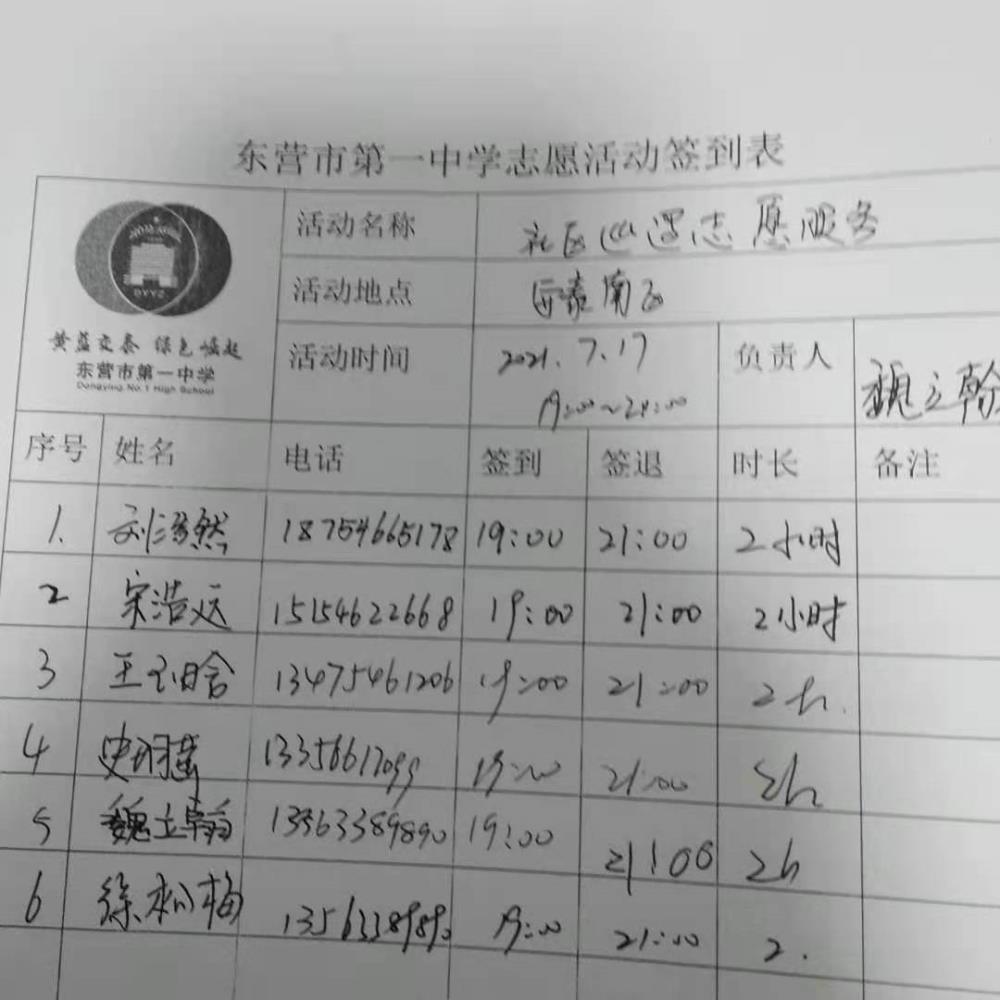 东营市第一中学志愿活动签到表
活动名称 社区巡逻志愿服务
DYYZ
活动地点 南区
黄蓝交泰 绿色崛起
东营市第一中学
Dongying No.1 High School
活动时间 2021.7.17 负责人 魏立翰
19:00~21:00
序号 姓名 电话 签到 签退 时长 备注
1. 刘浩然 18754665178 19:00 21:00 2小时
2 宋浩远 15154622668 19:00 21:00 2小时
3 王 13475461206 19:00 21:00 2h.
4 史 13356617099 19:00 21:00 2h
5 魏立翰 13963389890 19:00 21:00 2h
6 徐 梅 13563389890 19:00 21:00 2.